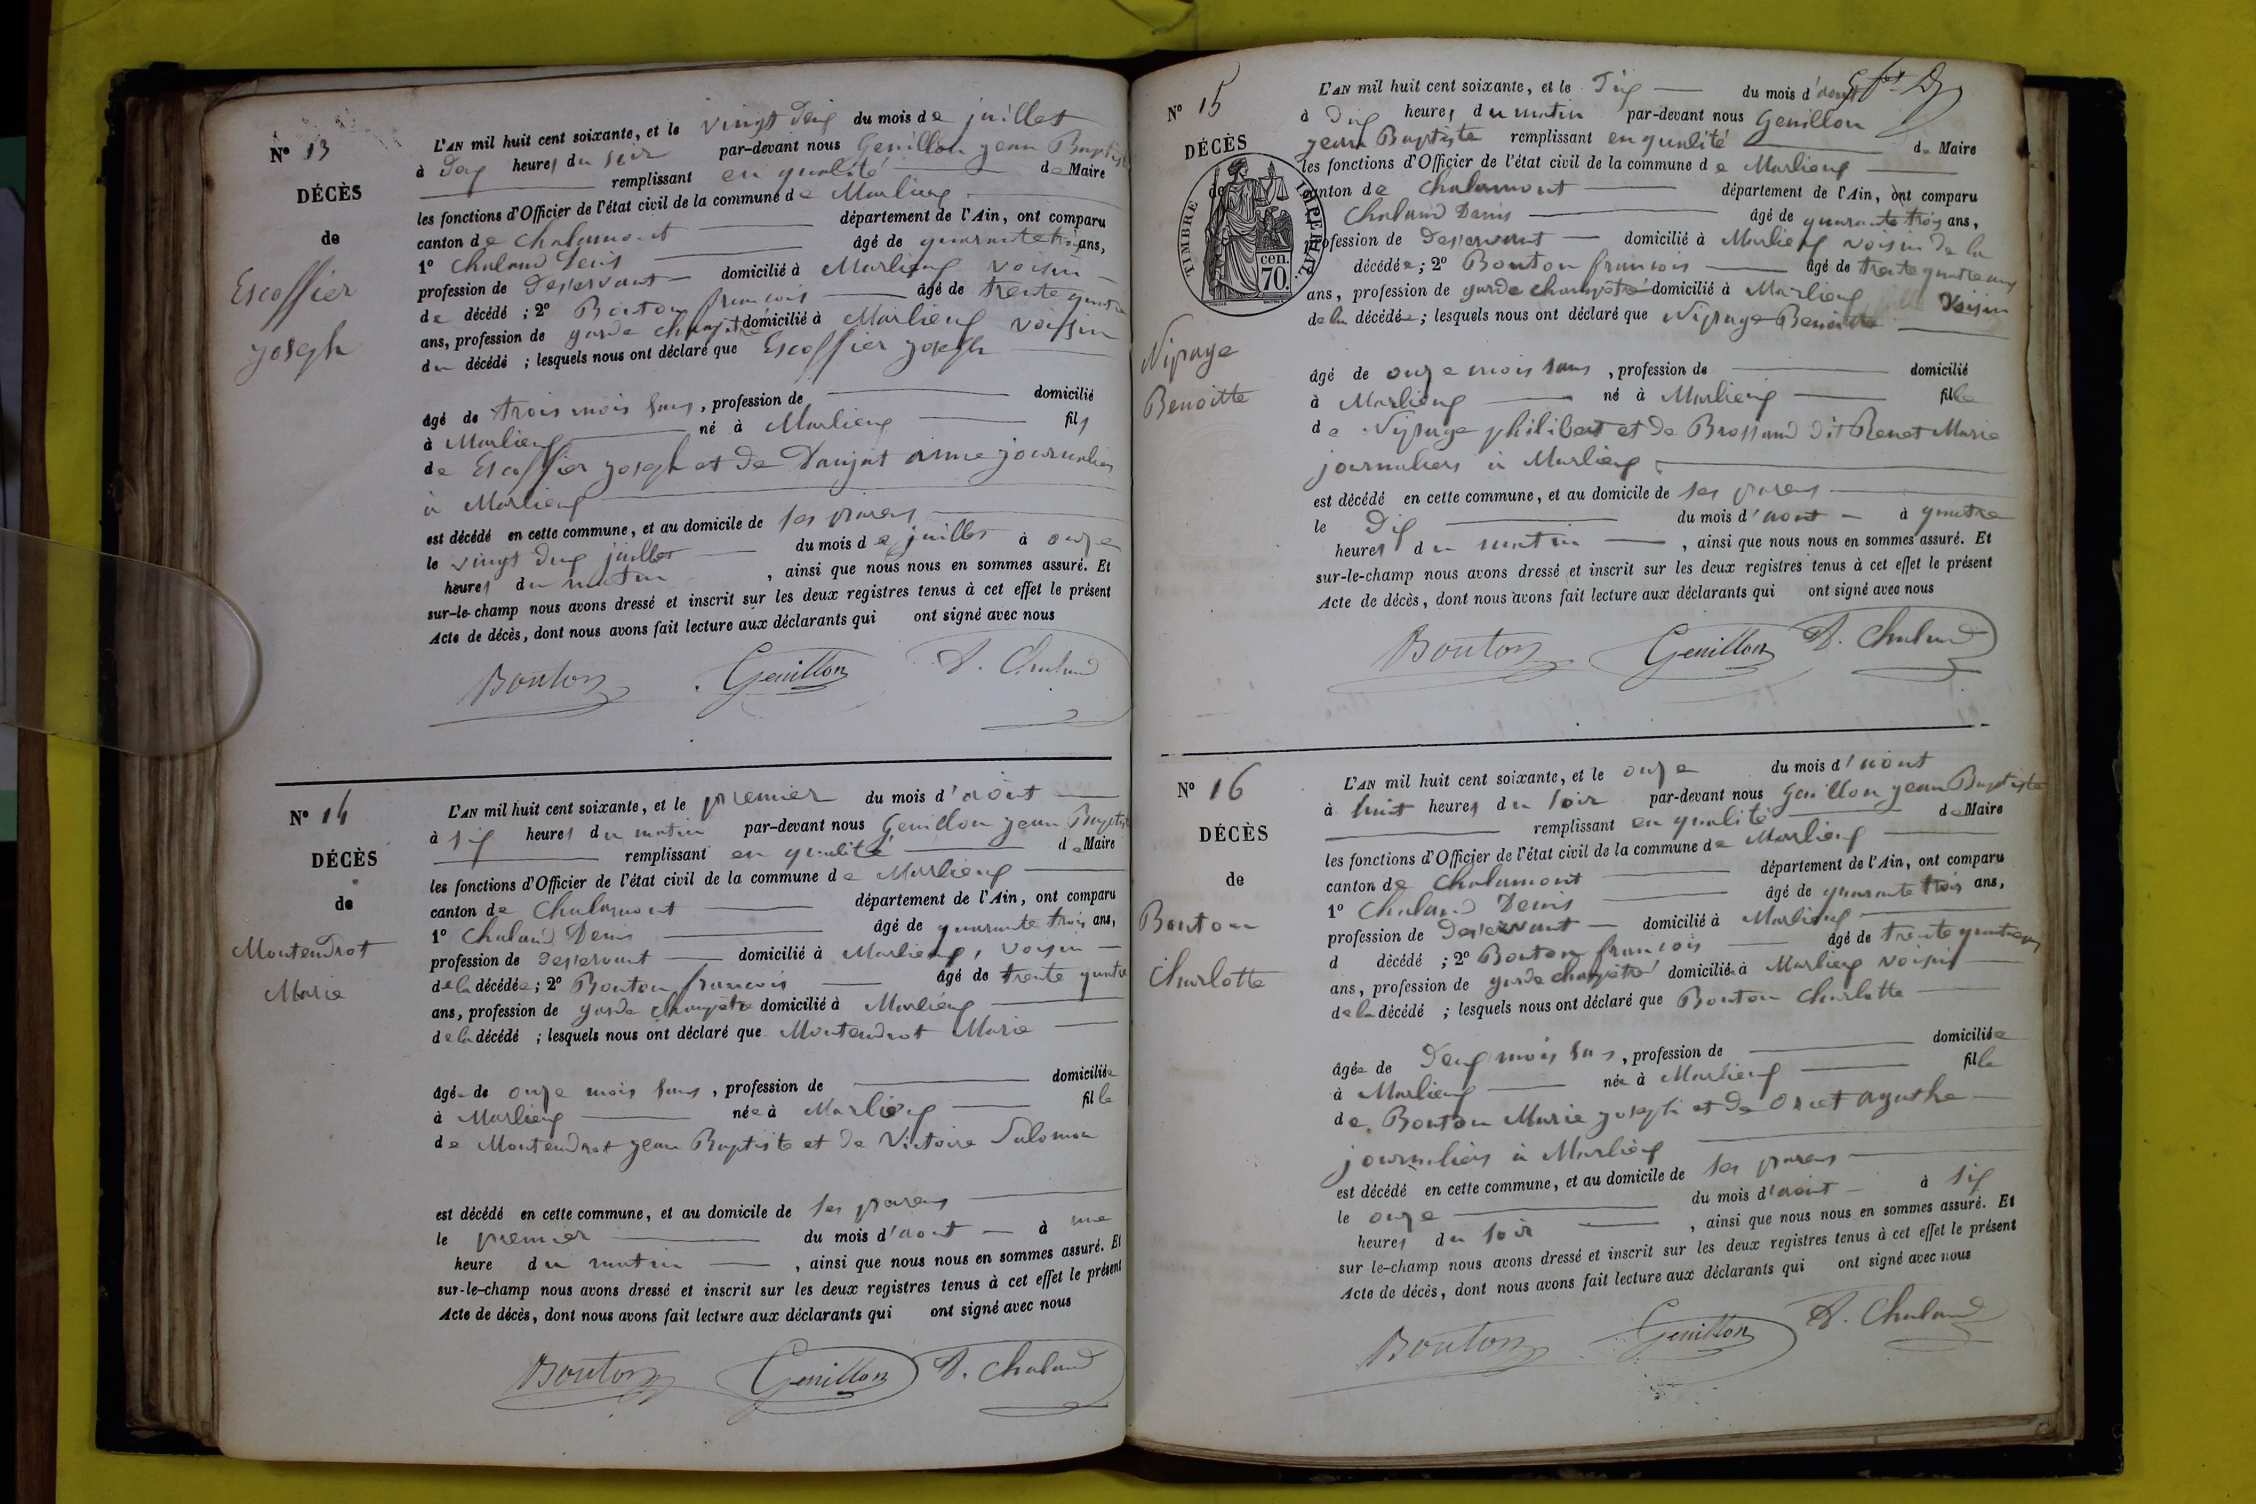 N° 13
DÉCÈS
de
Escoffier
joseph
L'AN mil huit cent soixante, et le vingt deux du mois de juillet
à Dex heures du soir par-devant nous Genillon jean Baptiste
remplissant en qualité de Maire
les fonctions d'Officier de l'état civil de la commune de Marlieux
canton de Chalamont département de l'Ain, ont comparu
1° Chaland Denis âgé de quarante trois ans,
profession de Desservant domicilié à Marlieux voisin
de décédé ; 2° Bouton francois âgé de trente quatre
ans, profession de garde champêtre domicilié à Marlieux voisin
du décédé ; lesquels nous ont déclaré que Escoffier joseph
âgé de trois mois sans, profession de domicilié
à Marlieux né à Marlieux fils
de Escoffier joseph et de Anne journaliers
à Marlieux
est décédé en cette commune, et au domicile de ses parens
le vingt deux juillet du mois de juillet à onze
heures du matin , ainsi que nous nous en sommes assuré. Et
sur-le-champ nous avons dressé et inscrit sur les deux registres tenus à cet effet le présent
Acte de décès, dont nous avons fait lecture aux déclarants qui ont signé avec nous
Bouton Genillon D. Chaland
N° 14
DÉCÈS
de
Montendrot
Marie
L'AN mil huit cent soixante, et le premier du mois d'août
à six heures du matin par-devant nous Genillon jean Baptiste
remplissant en qualité de Maire
les fonctions d'Officier de l'état civil de la commune de Marlieux
canton de Chalamont département de l'Ain, ont comparu
1° Chaland Denis âgé de quarante trois ans,
profession de Desservant domicilié à Marlieux, voisin
de la décédée ; 2° Bouton francois âgé de trente quatre
ans, profession de garde champêtre domicilié à Marlieux
de la décédé ; lesquels nous ont déclaré que Montendrot Marie
âgée de onze mois sans, profession de domiciliée
à Marlieux née à Marlieux fille
de Montendrot jean Baptiste et de Victoire Salomon
est décédé en cette commune, et au domicile de ses parens
le premier du mois d'aout à une
heure du matin , ainsi que nous nous en sommes assuré. Et
sur-le-champ nous avons dressé et inscrit sur les deux registres tenus à cet effet le présent
Acte de décès, dont nous avons fait lecture aux déclarants qui ont signé avec nous
Bouton Genillon D. Chaland
N° 15
DÉCÈS
de
TIMBRE IMPERIAL
cen.
70.
Nipage
Benoitte
L'AN mil huit cent soixante, et le Dix du mois d'aout
à Dix heures du matin par-devant nous Genillon
jean Baptiste remplissant en qualité de Maire
les fonctions d'Officier de l'état civil de la commune de Marlieux
canton de Chalamont département de l'Ain, ont comparu
Chaland Denis âgé de quarante trois ans,
profession de Desservant domicilié à Marlieux voisin de la
décédée ; 2° Bouton francois âgé de trente quatre ans
ans, profession de garde champêtre domicilié à Marlieux voisin
de la décédée ; lesquels nous ont déclaré que Nipage Benoitte
âgé de onze mois sans , profession de domicilié
à Marlieux né à Marlieux fille
de Nipage philibert et de Brossand dit Renet Marie
journaliers à Marlieux
est décédé en cette commune, et au domicile de ses parens
le Dix du mois d'aout à quatre
heures du matin , ainsi que nous nous en sommes assuré. Et
sur-le-champ nous avons dressé et inscrit sur les deux registres tenus à cet effet le présent
Acte de décès, dont nous avons fait lecture aux déclarants qui ont signé avec nous
Bouton Genillon D. Chaland
N° 16
DÉCÈS
de
Bouton
Charlotte
L'AN mil huit cent soixante, et le onze du mois d'aout
à huit heures du soir par-devant nous Genillon jean Baptiste
remplissant en qualité de Maire
les fonctions d'Officier de l'état civil de la commune de Marlieux
canton de Chalamont département de l'Ain, ont comparu
1° Chaland Denis âgé de quarante trois ans,
profession de Desservant domicilié à Marlieux
d décédé ; 2° Bouton francois âgé de trente quatre ans
ans, profession de garde champêtre domicilié à Marlieux voisin
de la décédé ; lesquels nous ont déclaré que Bouton Charlotte
âgée de Deux mois sans, profession de domiciliée
à Marlieux née à Marlieux fille
de Bouton Marie joseph et de agathe
journaliers à Marlieux
est décédé en cette commune, et au domicile de ses parens
le onze du mois d'aout à six
heures du soir , ainsi que nous nous en sommes assuré. Et
sur le-champ nous avons dressé et inscrit sur les deux registres tenus à cet effet le présent
Acte de décès, dont nous avons fait lecture aux déclarants qui ont signé avec nous
Bouton Genillon D. Chaland